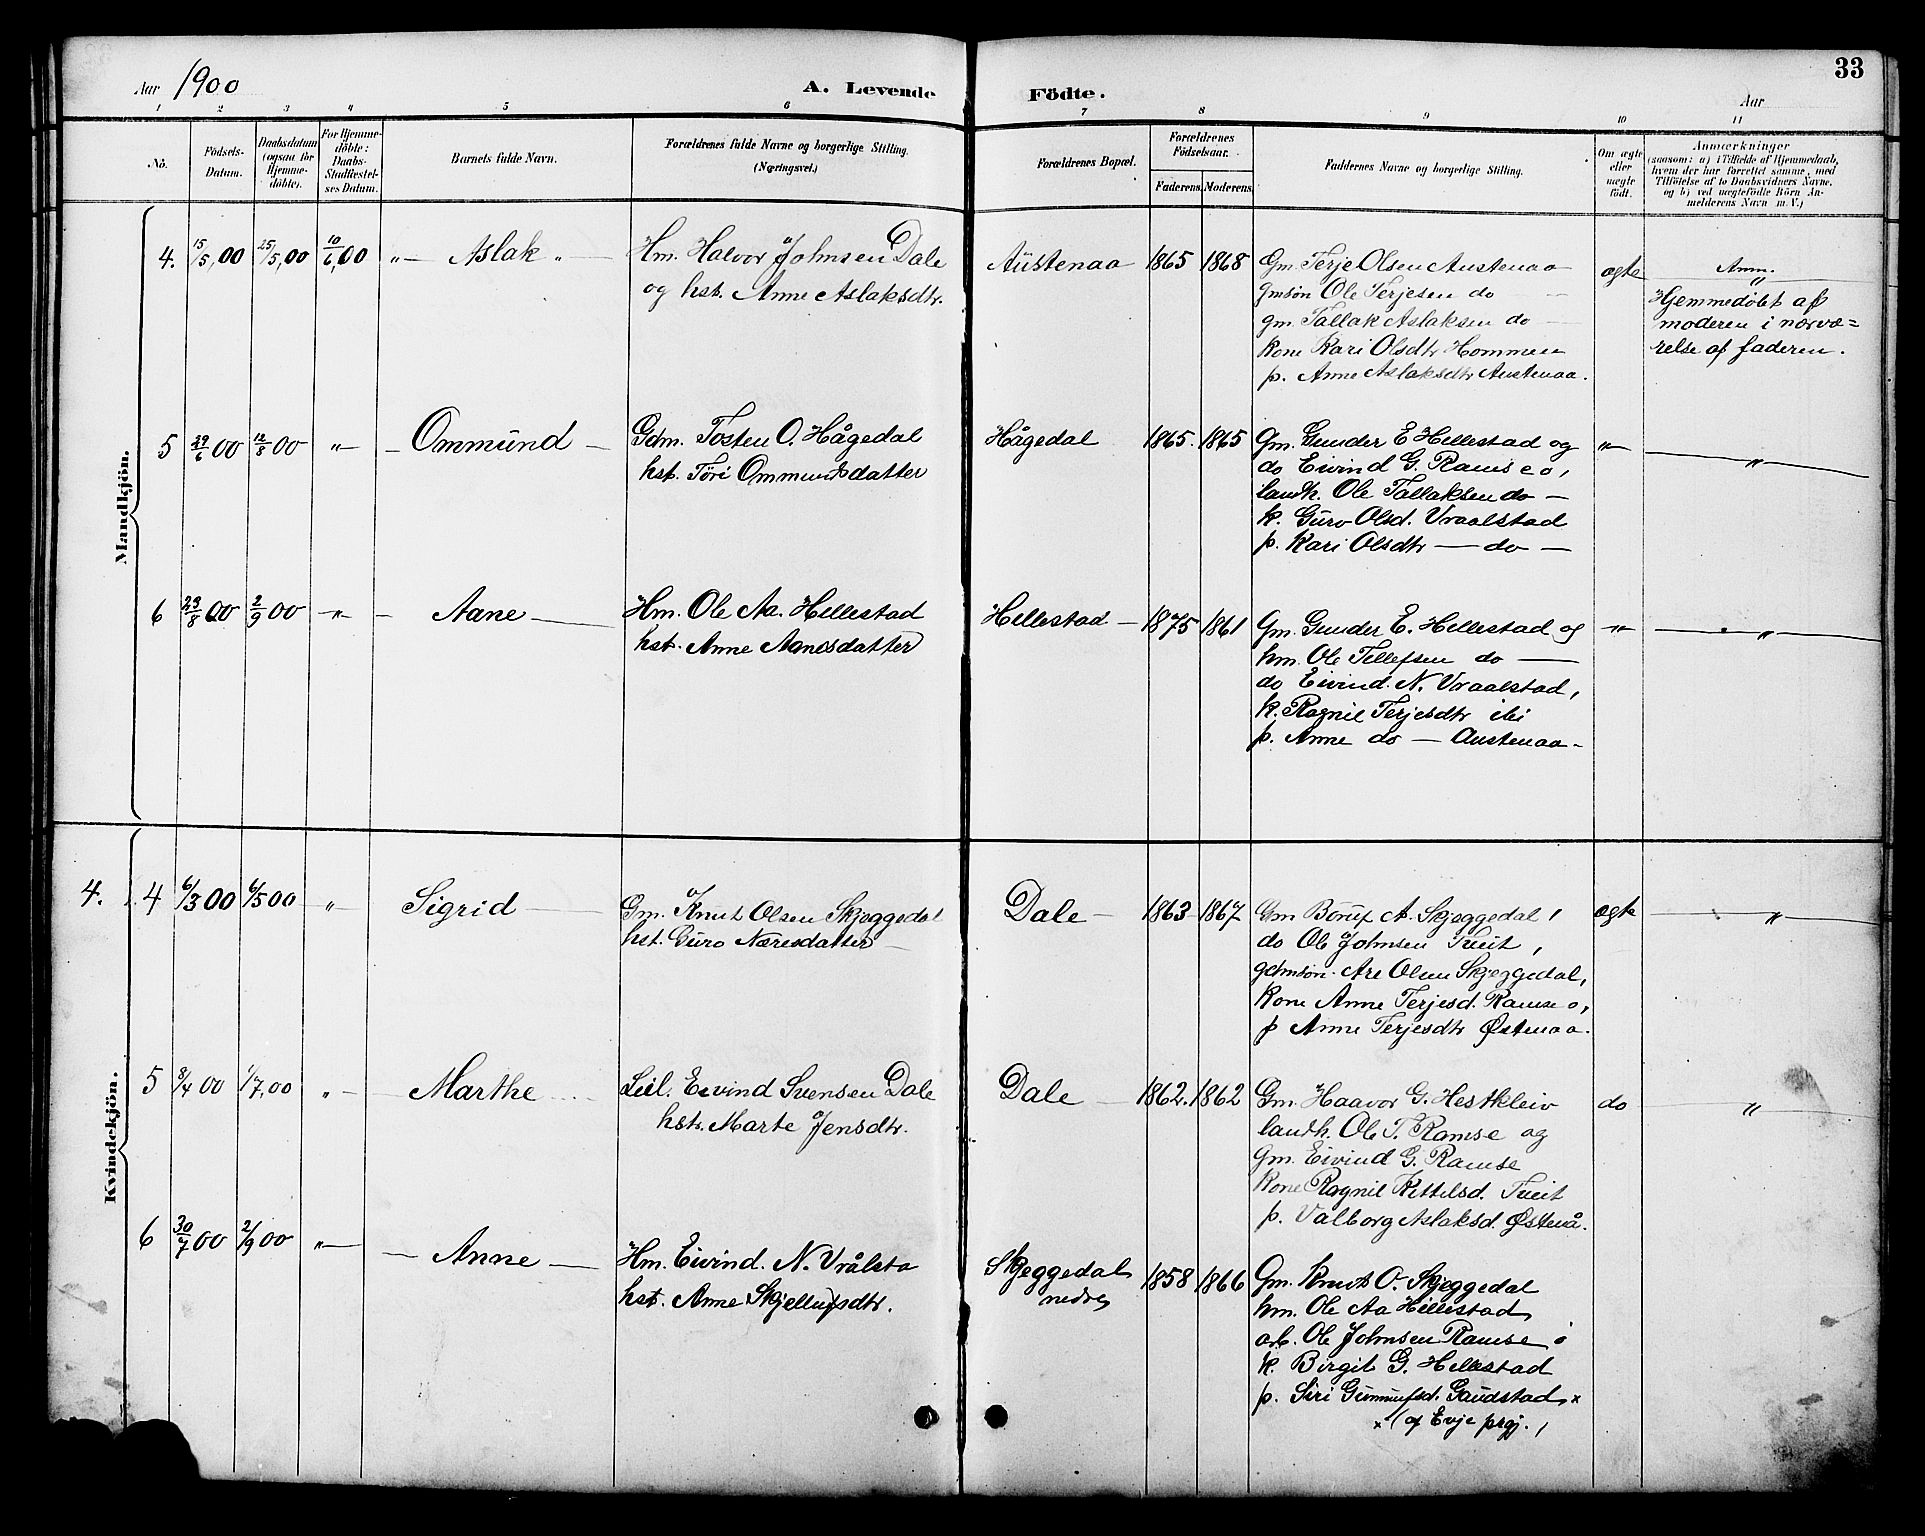 Aar 1900
A. Levende Födte.
Aar
33
1 2 3 4 5 6 7 8 9 10 11
No.
Födsels-
Datum.
Daabsdatum
(ogsaa for
Hjemme-
döbte).
For Hjemme-
döbte:
Daabs-
Stadfæstel-
ses Datum.
Barnets fulde Navn.
Forældrenes fulde Navne og borgerlige Stilling.
(Næringsvei.)
Forældrenes Bopæl.
Forældrenes
Födselsaar.
Faderens. Moderens.
Faddernes Navne og borgerlige Stilling.
Om ægte
eller
uægte
födt.
Anmærkninger
(saasom: a) i Tilfælde af Hjemmedaab,
hvem der har forrettet samme, med
Tilföielse af to Daabsvidners Navne,
og b) ved uægtefödte Börn An-
melderens Navn m. V.)
Mandkjön.
4. 15/5,00 25/5,00 10/6,00 „— Aslak „—
Hm. Halvor Johnsen Dale
og hst. Anne Aslaksdtr.
Austenaa 1865 1868
Gm. Terje Olsen Austenaa
Gmsön Ole Terjesen do —
gm. Tallak Aslaksen do —
Kone Kari Olsdtr Hommen
p. Anne Aslaksdtr Austenaa.
ægte
Anm.
„
Hjemmedöbt af
moderen i nærvæ=
relse af faderen.
5 29/6 00 12/8 00 „— — Ommund —
Gdm. Tosten O. Hågedal
hst. Töri Ommundsdatter
Hågedal 1865. 1865
Gm. Gunder E Hellestad og
do Eivind G. Ramse o,
landh. Ole Tallaksen do —
k. Guro Olsd. Vraalstad
p. Kari Olsdtr — do —
„— — „ —
6 29/8 00 2/9 00 „— — Aane —
Hm. Ole Aa. Hellestad
hst. Anne Aanesdatter
Hellestad — 1875 1861
Gm. Gunder E. Hellestad og
hm. Ole Tellefsen do —
do Eivind. N. Vraalstad,
k. Ragnil Terjesdtr ibi
p. Anne do — Austenaa —
„— — „ —
Kvindekjön.
4. 4 6/3 00 6/5 00 „— Sigrid —
Gm. Knut Olsen Skjeggedal
hst. Guro Næresdatter —
Dale — 1863 1867
Gm Böruf A. Skjeggedal,
do Ole Johnsen Tveit,
gdmsön. Are Olsen Skjeggedal,
Kone Anne Terjesd. Ramse o,
p Anne Terjesdtr Østenaa.
ægte — „ —
5 8/4 00 1/7,00 „— — Marthe
Leil. Eivind Svensen Dale
hst. Marte Jensdtr.
Dale — 1862. 1862
Gm. Haavor G. Hestkleiv
landh. Ole T. Ramse og
Gm. Eivind G. Ramse
Kone Ragnil Kittelsd. Tveit
p. Valborg Aslaksd. Østenå.
do — „ —
6 30/7 00 2/9 00 „— — Anne —
Hm. Eivind. N. Vrålsta
hst. Anne Skjellufsdtr.
Skjeggedal
nedre 1858 1866
Gm. Knut O. Skjeggedal
hm. Ole Aa Hillestad
arb. Ole Johnsen Ramse o
k. Birgit G. Hellestad
p. Siri Gunnufsd. Gaudstad, x
x (af Evje prgj.,